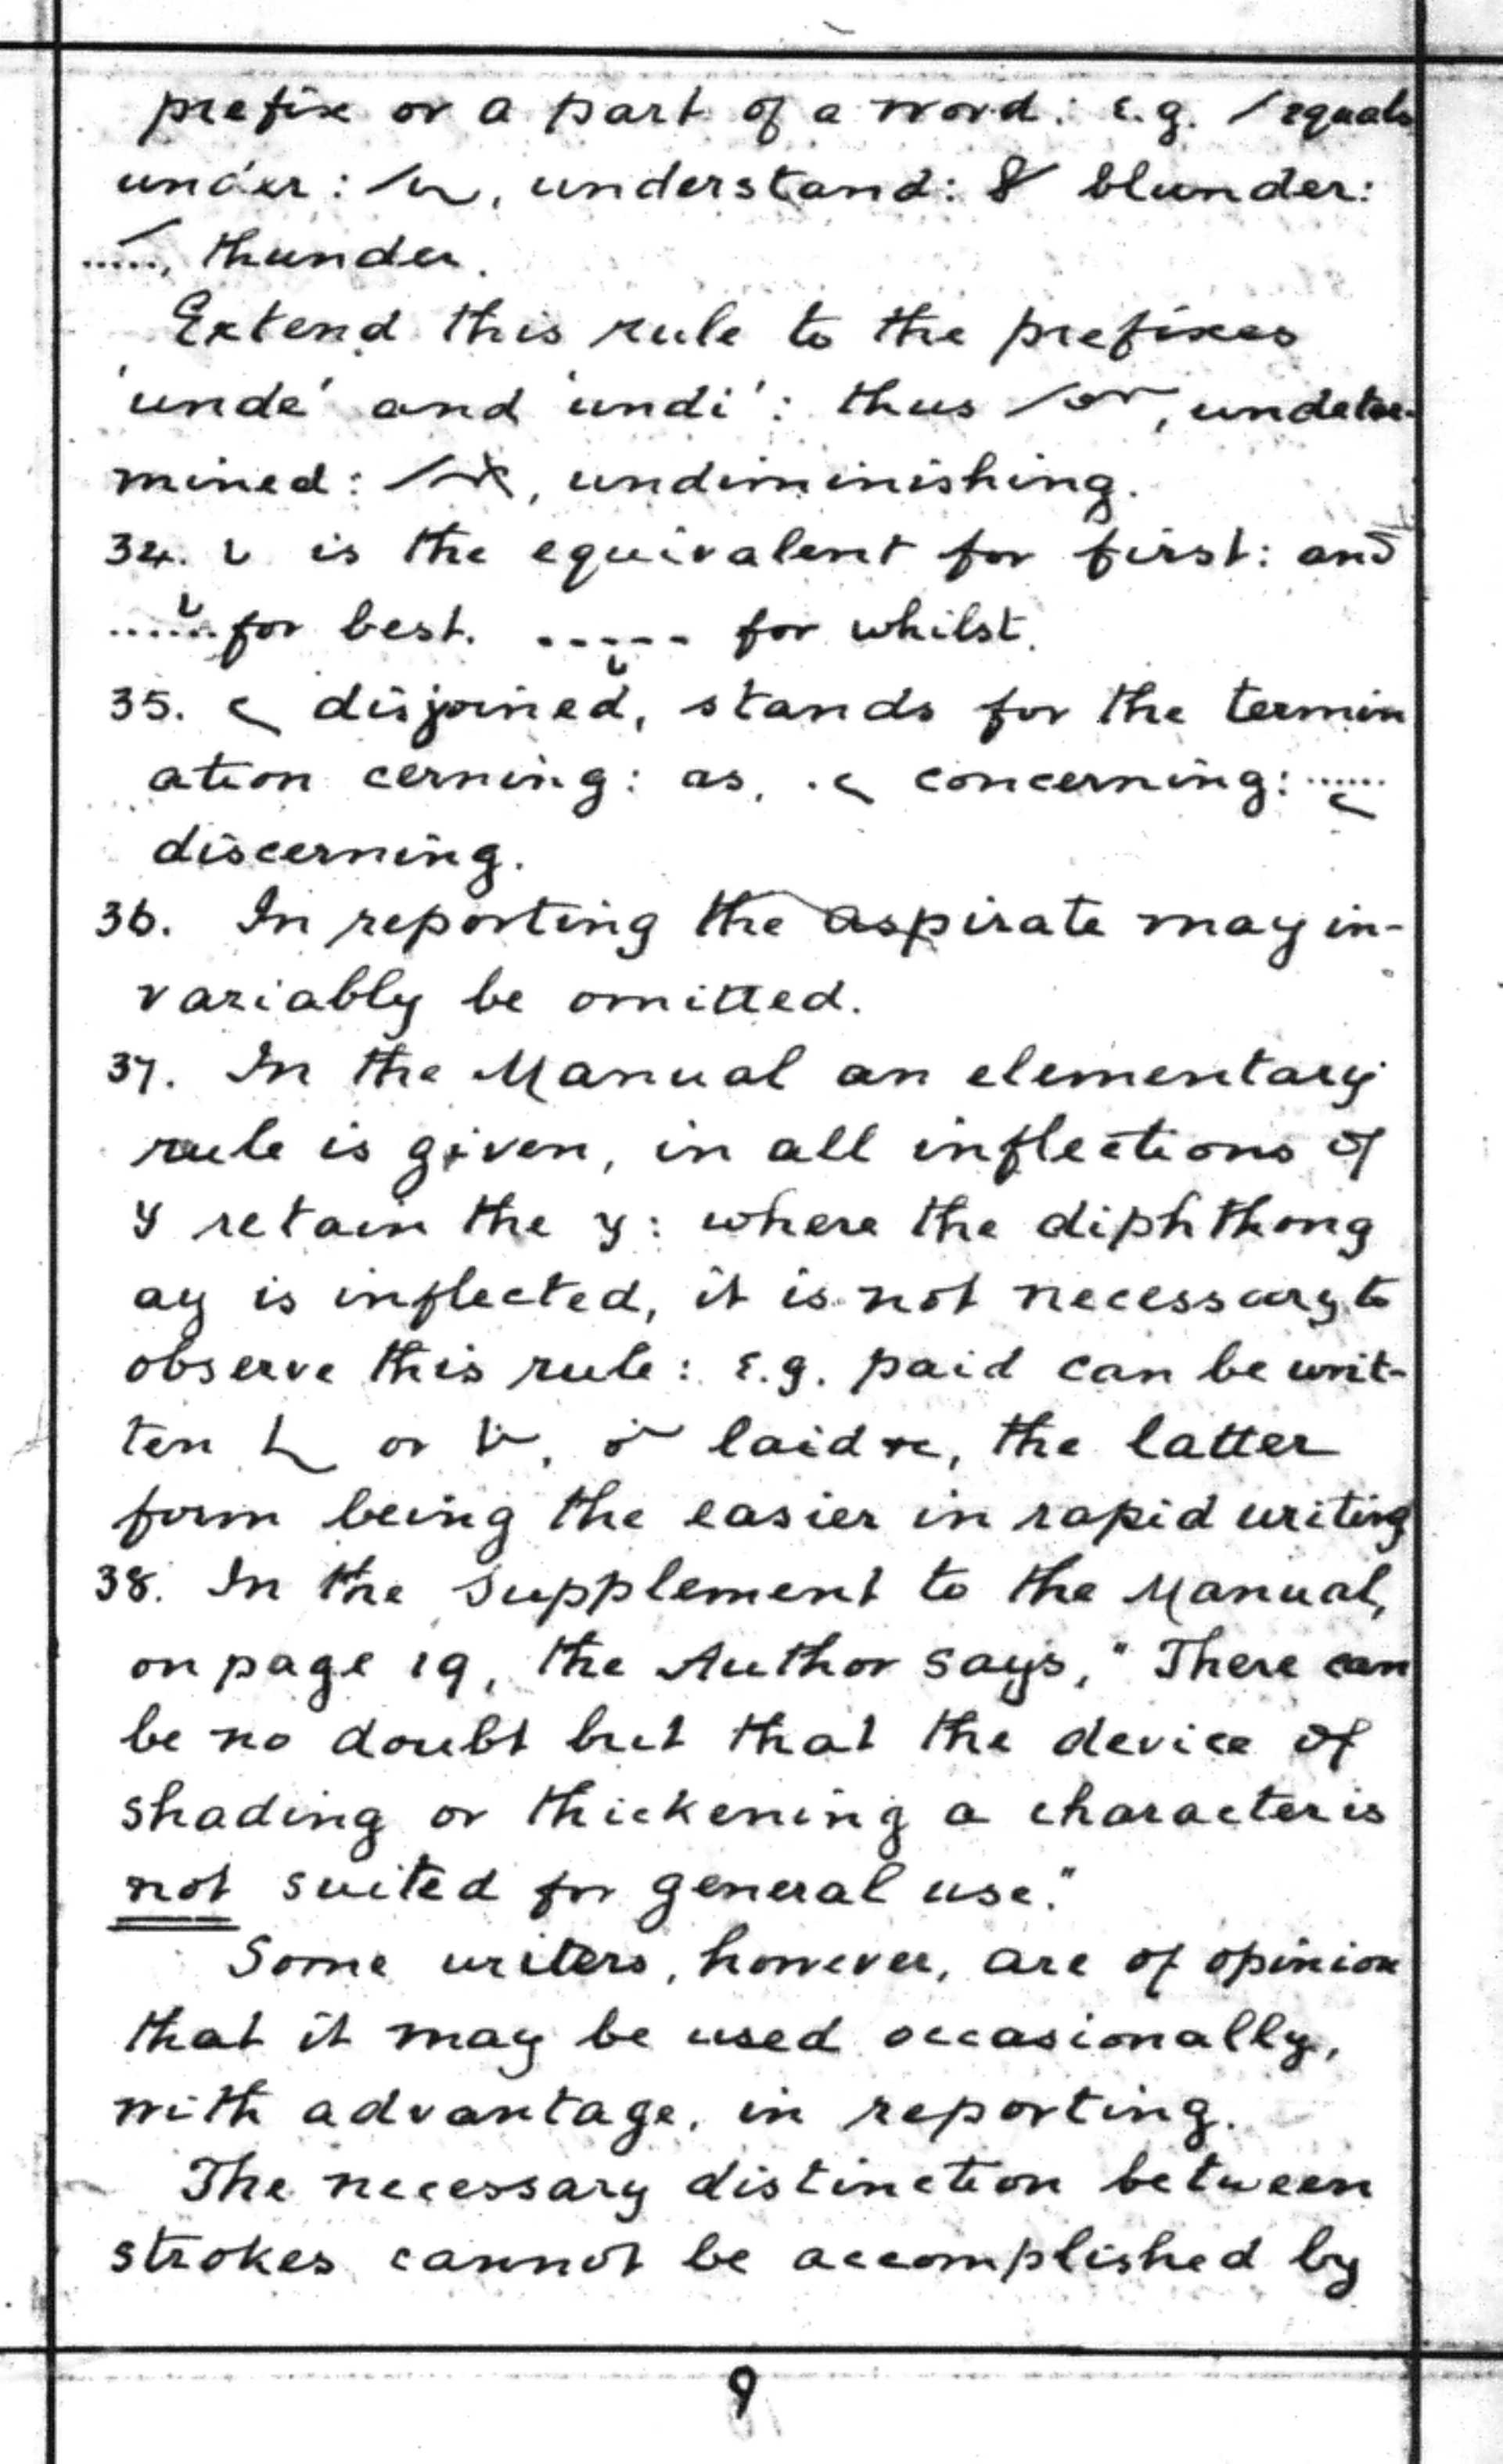 prefix or a part of a word: e.g. / equals
under: , understand: blunder:
....., thunder.
Extend this rule to the prefixes
'unde' and 'undi': thus , undeter-
mined: , undiminishing.
34. is the equivalent for first: and
...... for best. ----- for whilst.
35. disjoined, stands for the termin
ation cerning: as, concerning: ......
discerning.
36. In reporting the aspirate may in-
variably be omitted.
37. In the Manual an elementary
rule is given, in all inflections of
y retain the y: where the diphthong
ay is inflected, it is not necessary to
observe this rule: e.g. paid can be writ-
ten or , laid , the latter
form being the easier in rapid writing
38. In the Supplement to the Manual,
on page 19, the Author says, "There can
be no doubt but that the device of
shading or thickening a character is
not suited for general use."
Some writers, however, are of opinion
that it may be used occasionally,
with advantage, in reporting.
The necessary distinction between
strokes cannot be accomplished by
9